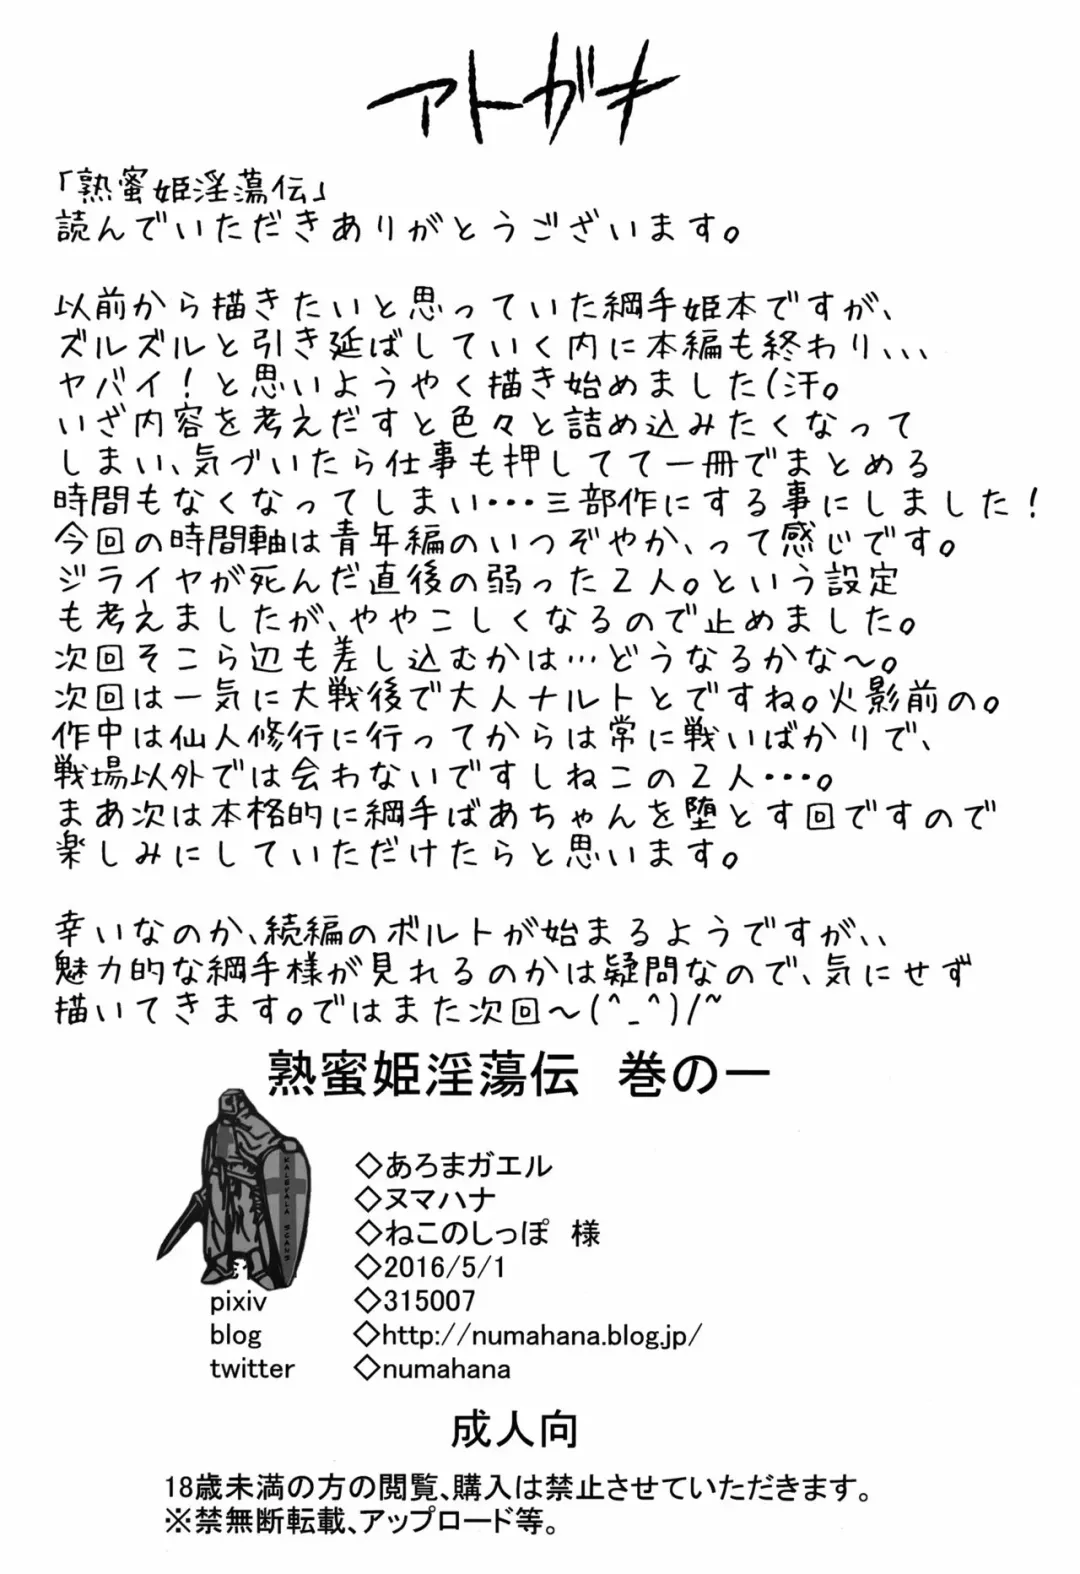 アトガキ
「熟蜜姫淫蕩伝」
読んでいただきありがとうございます。
以前から描きたいと思っていた綱手姫本ですが、
ズルズルと引き延ばしていく内に本編も終わり、、、
ヤバイ！と思いようやく描き始めました(汗。
いざ内容を考えだすと色々と詰め込みたくなって
しまい、気づいたら仕事も押してて一冊でまとめる
時間もなくなってしまい・・・三部作にする事にしました！
今回の時間軸は青年編のいつぞやか、って感じです。
ジライヤが死んだ直後の弱った２人。という設定
も考えましたが、ややこしくなるので止めました。
次回そこら辺も差し込むかは…どうなるかな～。
次回は一気に大戦後で大人ナルトとですね。火影前の。
作中は仙人修行に行ってからは常に戦いばかりで、
戦場以外では会わないですしねこの２人・・・。
まあ次は本格的に綱手ばあちゃんを堕とす回ですので
楽しみにしていただけたらと思います。
幸いなのか、続編のボルトが始まるようですが、、
魅力的な綱手様が見れるのかは疑問なので、気にせず
描いてきます。ではまた次回～(^_^)/~
熟蜜姫淫蕩伝　巻の一
KALEVALA SCANS
◇あろまガエル
◇ヌマハナ
◇ねこのしっぽ　様
◇2016/5/1
pixiv ◇315007
blog ◇http://numahana.blog.jp/
twitter ◇numahana
成人向
18歳未満の方の閲覧、購入は禁止させていただきます。
※禁無断転載、アップロード等。